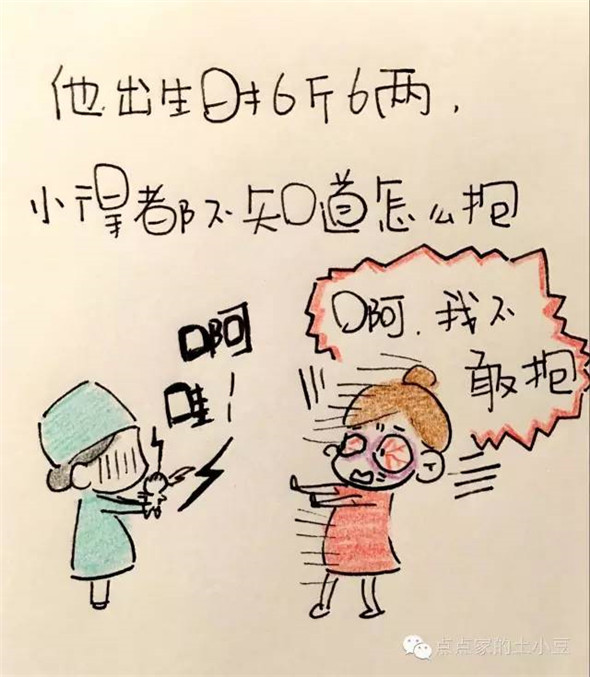 他出生时6斤6两，
小得都不知道怎么抱
啊
哇！
啊，我不
敢抱
点点家的土小豆